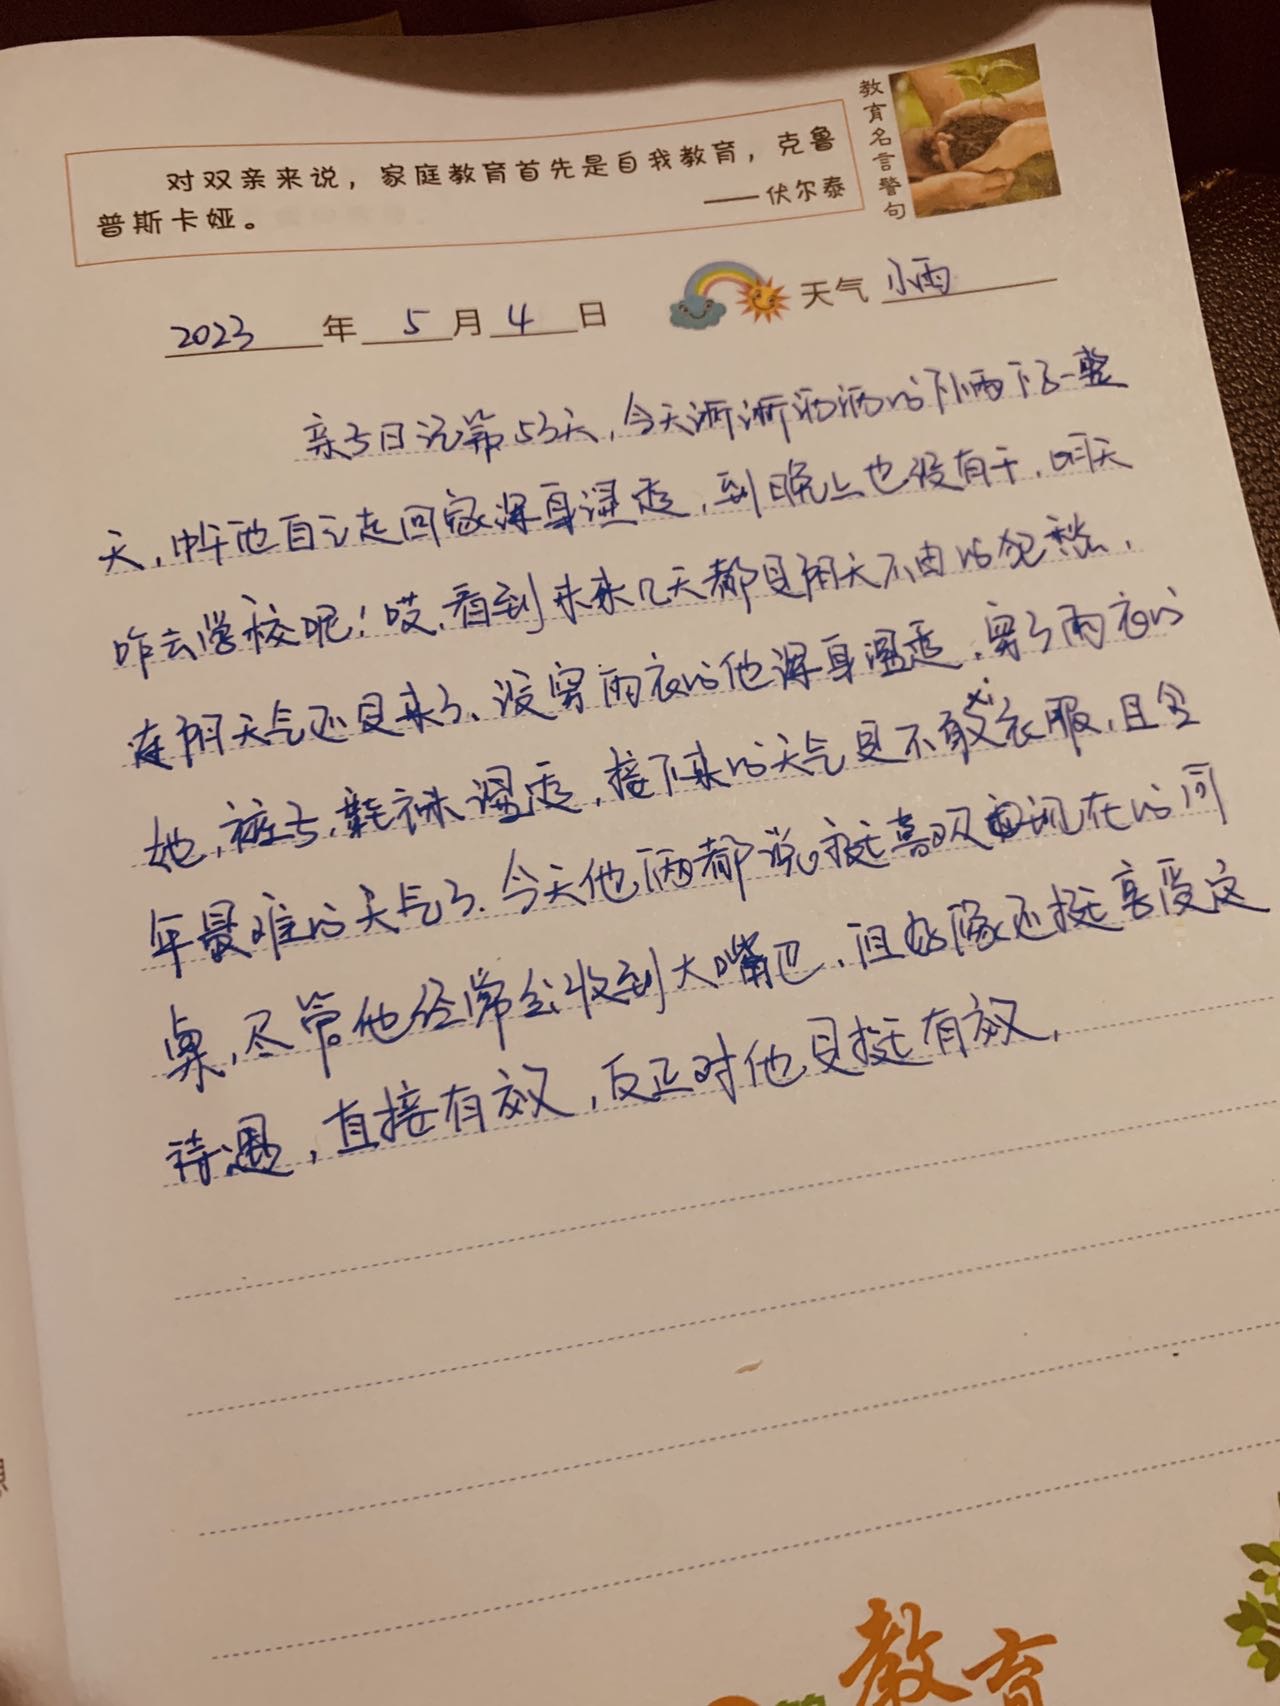 教育名言警句
对双亲来说，家庭教育首先是自我教育，克鲁
普斯卡娅。
——伏尔泰
2023年5月4日 天气 小雨
亲子日记第53天，今天淅淅沥沥的下雨下了一整
天，中午他自己走回家浑身湿透，到晚上也没有干，明天
咋去学校呢！哎，看到未来几天都是阴天不由的犯愁，
连阴天气还是来了、没穿雨衣的他浑身湿透，穿了雨衣的
她，裤子，鞋袜湿透，接下来的天气是不敢洗衣服，且全
年最难的天气了．今天他俩都说挺喜欢现在的同
桌，尽管他经常会收到大嘴巴，但好像还挺享受这
待遇，直接有效，反正对他是挺有效，
教育